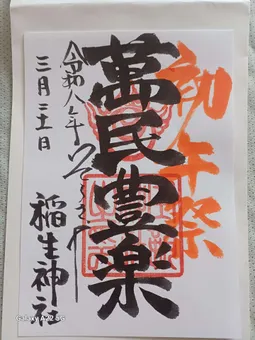 初午祭
萬民豊楽
令和八年
三月三十日
稲生神社
Galaxy A22 5G